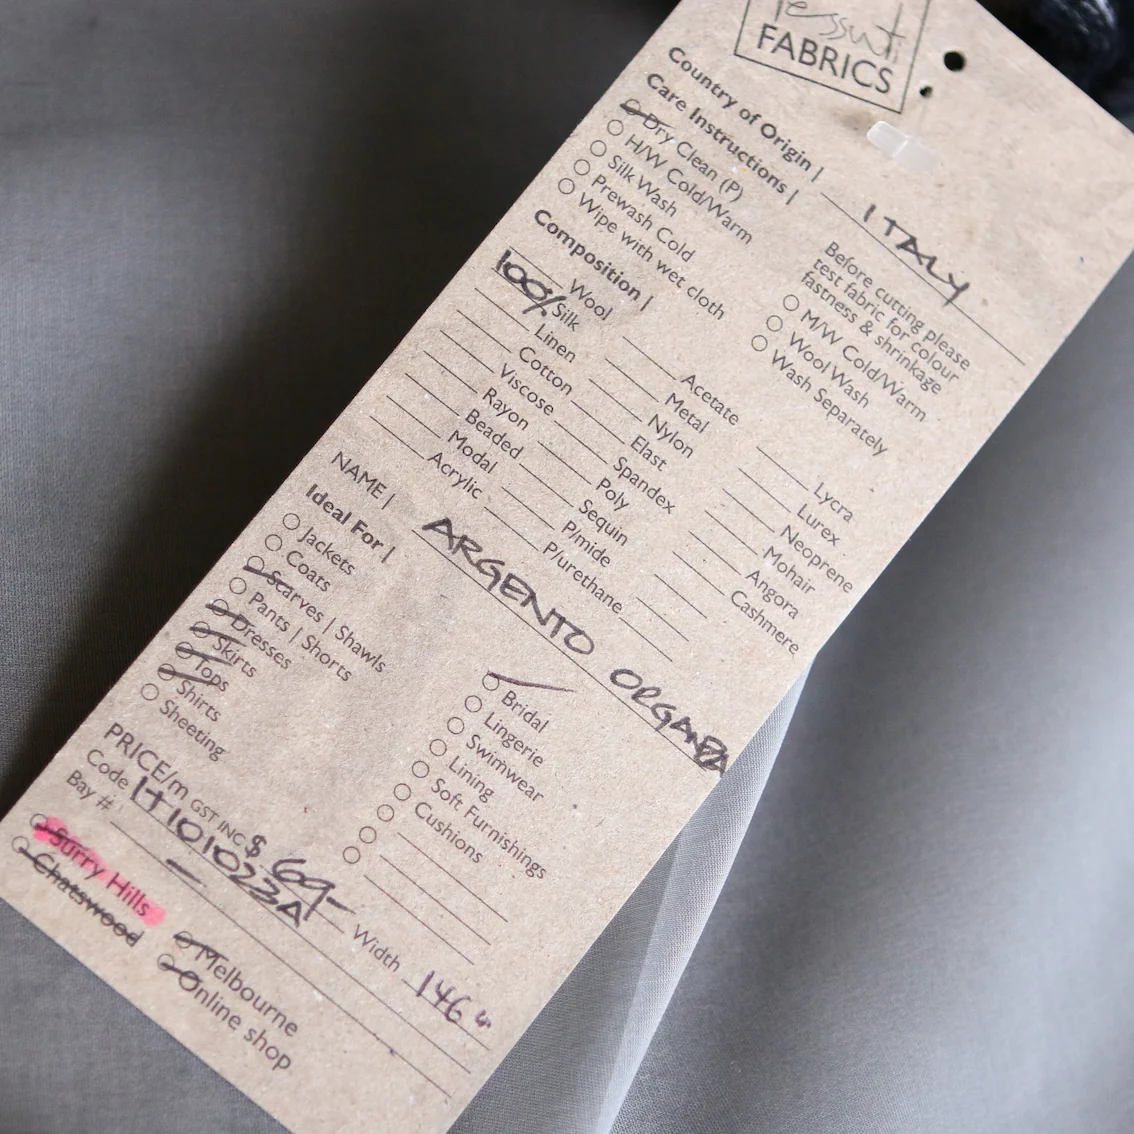 Tessuti
FABRICS
Country of Origin | ITALY
Care Instructions |
Dry Clean (P)
H/W Cold/Warm
Silk Wash
Prewash Cold
Wipe with wet cloth
Before cutting please
test fabric for colour
fastness & shrinkage
M/W Cold/Warm
Wool Wash
Wash Separately
Composition |
Wool
100% Silk
Linen
Cotton
Viscose
Rayon
Beaded
Modal
Acrylic
Acetate
Metal
Nylon
Elast
Spandex
Poly
Sequin
P/mide
P/urethane
Lycra
Lurex
Neoprene
Mohair
Angora
Cashmere
NAME | ARGENTO ORGANZA
Ideal For |
Jackets
Coats
Scarves | Shawls
Pants | Shorts
Dresses
Skirts
Tops
Shirts
Sheeting
Bridal
Lingerie
Swimwear
Lining
Soft Furnishings
Cushions
PRICE/m GST INC $ 69- Width 146
Code IT101023A
Bay # —
Surry Hills
Chatswood
Melbourne
Online shop